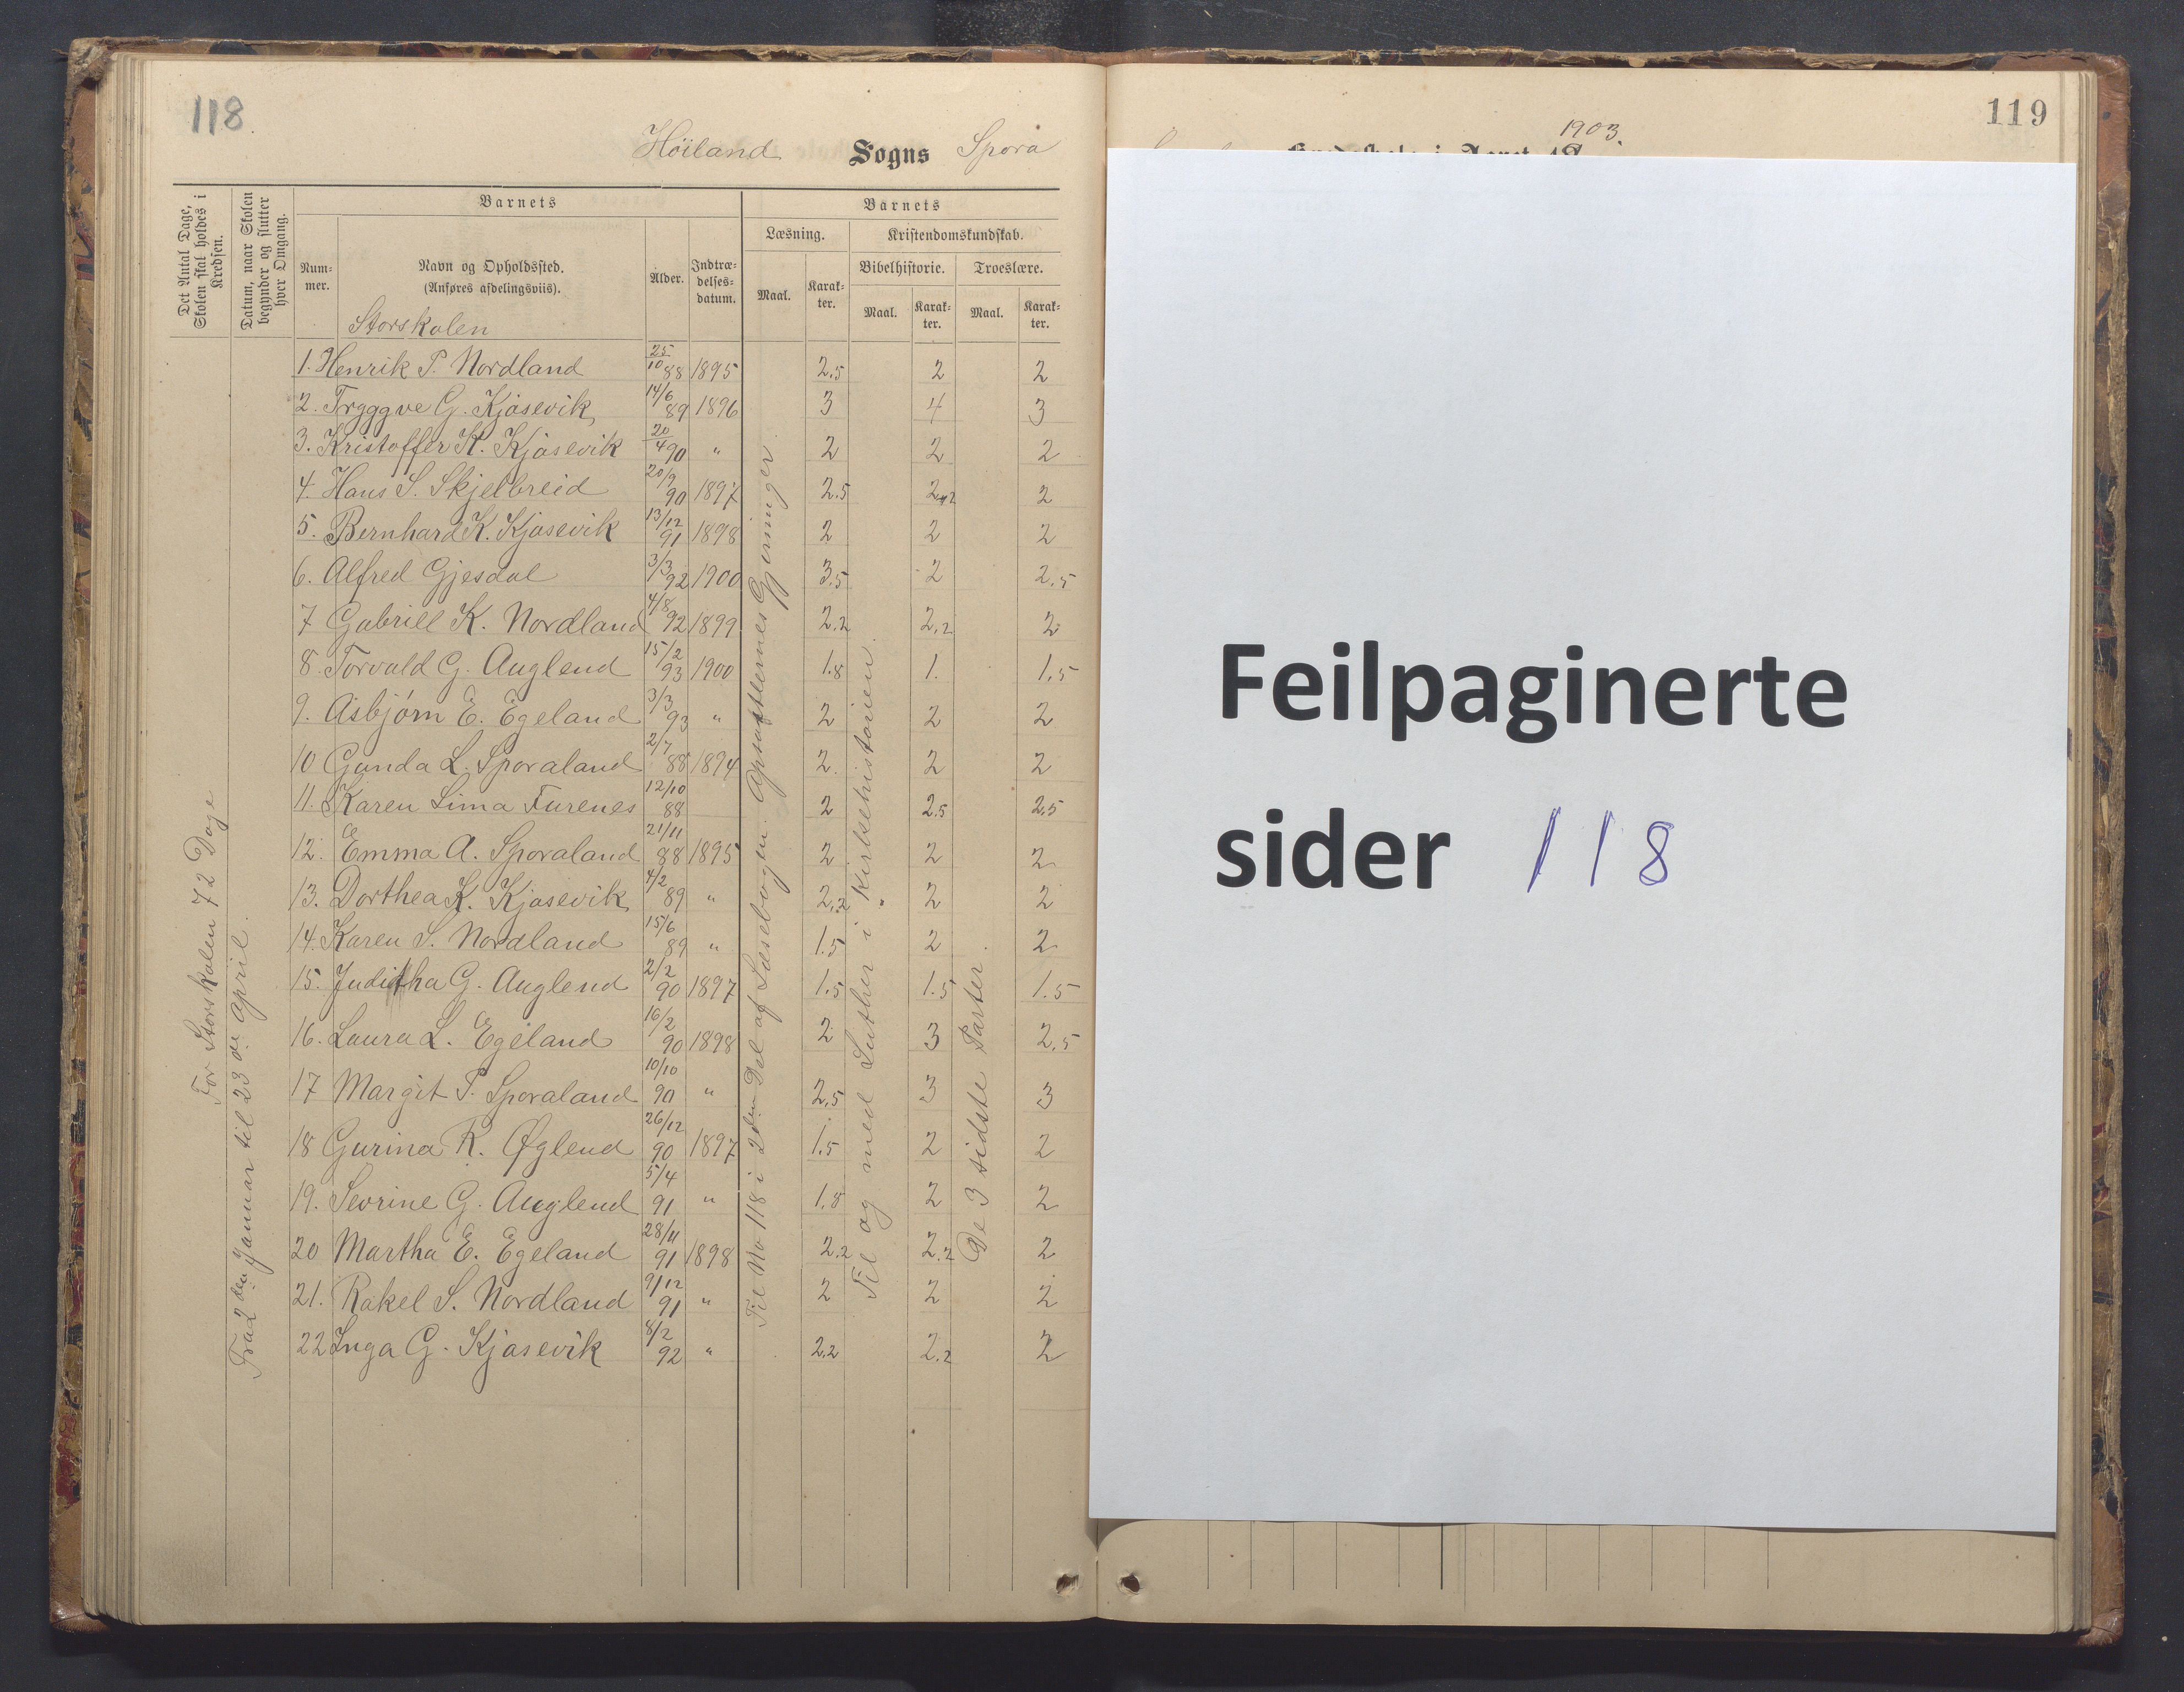 118
Höiland Sogns Spora
Det Antal Dage, Skolen skal holdes i Kredsen.
Datum, naar Skolen begynder og slutter hver Omgang.
Barnets
Barnets
Læsning.
Kristendomskundskab.
Bibelhistorie.
Troeslære.
Num-
mer.
Navn og Opholdssted.
(Anføres afdelingsviis).
Alder.
Indtræ-
delses-
datum.
Maal.
Karak-
ter.
Maal.
Karak-
ter.
Maal.
Karak-
ter.
Storskolen
1. Henrik P. Nordland 25/10 88 1895 2.5 2 2
2. Trygggve G. Kjosevik 14/6 89 1896 3 4 3
3. Kristoffer K. Kjosevik 20/4 90 " 2 2 2
4. Hans S. Skjelbreid 20/9 90 1897 2.5 2 2
5. Bernhard K. Kjosevik 13/12 91 1898 2 2 2
6. Alfred Gjesdal 3/3 92 1900 3.5 2 2.5
7 Gabriel K. Nordland 4/8 92 1899 2.2 2.2 2
8. Torvald G. Auglend 15/2 93 1900 1.8 1. 1.5
9. Asbjørn E. Egeland 3/3 93 " 2 2 2
10 Gunda L. Sporaland 2/7 88 1894 2. 2 2
11. Karen Lima Furenes 12/10 88 2 2.5 2.5
12. Emma A. Sporaland 21/11 88 1895 2 2 2
13. Dorthea K. Kjosevik 4/2 89 " 2.2 2 2
14. Karen S. Nordland 15/6 89 " 1.5 2 2
15. Juditha G. Auglend 2/2 90 1897 1.5 1.5 1.5
16. Laura L. Egeland 16/2 90 1898 2 3 2.5
17 Margit P. Sporaland 10/10 90 " 2.5 3 3
18 Gurina R. Øglend 26/12 90 1897 1.5 2 2
19. Sevrine G. Auglend 5/4 91 " 1.8 2 2
20 Martha E. Egeland 28/11 91 1898 2.2 2.2 2
21. Rakel S. Nordland 9/12 91 " 2 2 2
22 Inga G. Kjosevik 8/2 92 " 2.2 2.2 2
For Storskolen 72 Dage
Fra 2den Januar til 23de April.
Til No 118 i 2den Del af Læsebogen. Gjerninger
Til og med Luther i Kirkehistorien.
De 3 sidste Parter.
1903.
119
Feilpaginerte
sider 118